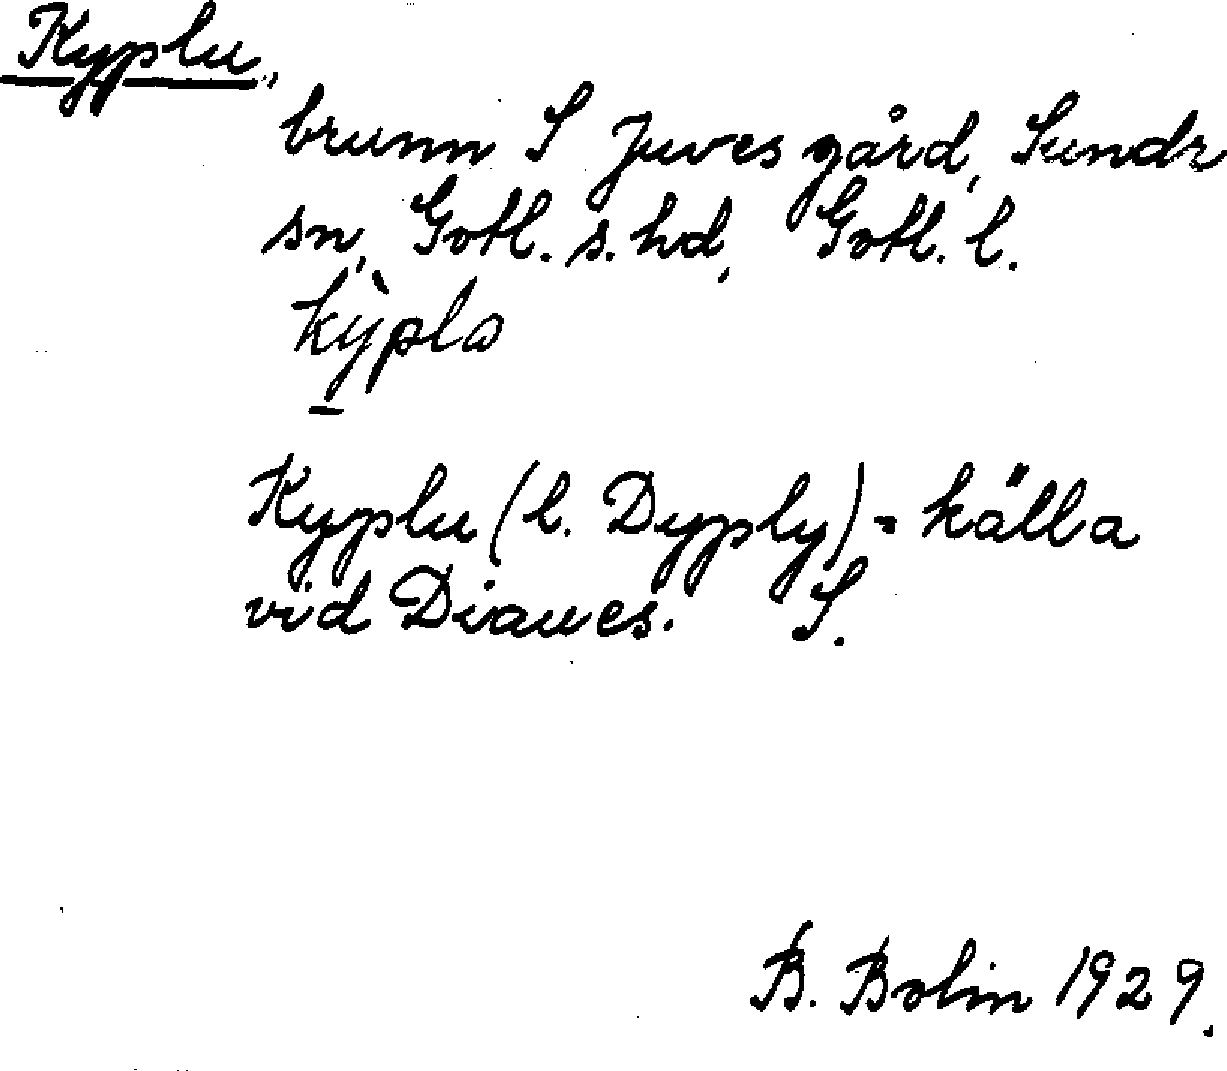 Kyplu,
brunn S Juves gård, Sundr
sn, Gotl. s. hd, Gotl. l.
kỳpla
Kyplu (l. Dyply) = källa
vid Diaues. S.
B. Bolin 1929.